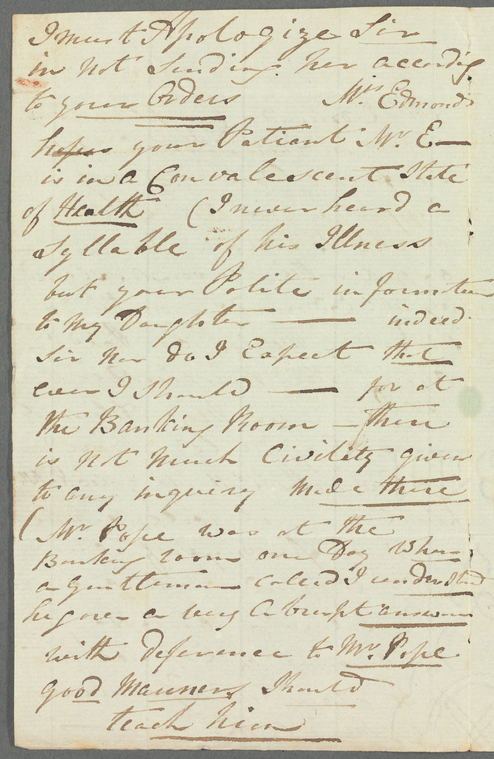 I must Apologize Sir
in not Sending her accordig
to your Orders Mrs Edmonds
hopes your Patient Mr. E—
is in a Convalescent State
of Health (I never heard a
Syllable of his Illness
but your Polite informtion
to my Daughter — indeed
Sir nor do I Expect that
ever I should — for at
the Banking Room — there
is not much Civility given
to any inquiry made there
(Mr. Pope was at the
Banking room one Day When
a gentleman called I understand
he gave a very Abrupt answer
with deference to Mr. Pope
good Manners Should
teach him